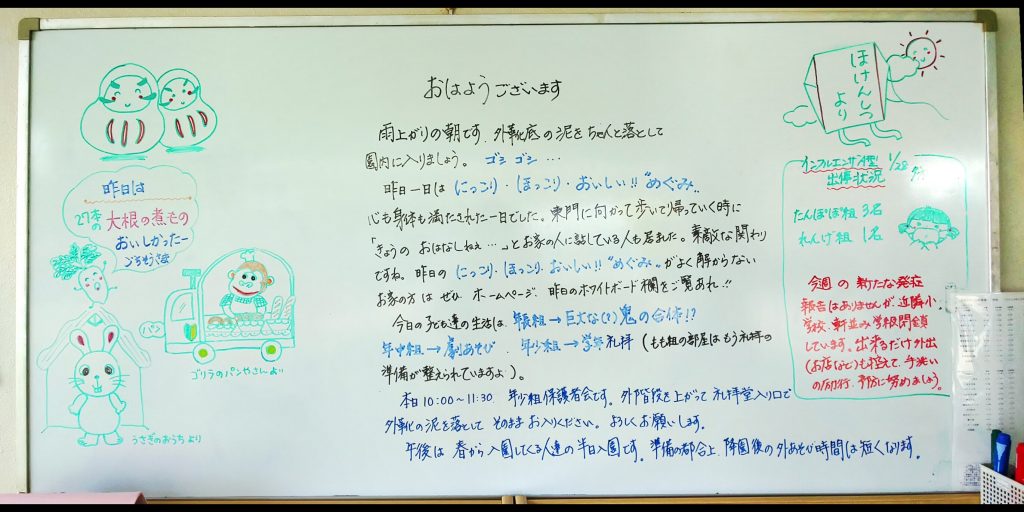 おはようございます
雨上がりの朝です。外靴底の泥をちゃんと落として
園内に入りましょう。 ゴシ ゴシ …
昨日一日は にっこり・ほっこり・おいしい!! “めぐみ”
心も身体も満たされた一日でした。東門に向かって歩いて帰っていく時に
「きょうの おはなしねぇ…」とお家の人に話している人も居ました。素敵な関わり
ですね。昨日の にっこり・ほっこり・おいしい!! “めぐみ” がよく解からない
お家の方は ぜひ ホームページ、昨日のホワイトボード欄をご覧あれ!!
今日の子ども達の生活は、年長組→巨大な(?)鬼の合体!?
年中組→劇あそび、年少組→学年礼拝 (もも組の部屋はもう礼拝の
準備が整えられていますよ)。
本日10:00〜11:30 年少組保護者会です。外階段を上がって礼拝堂入り口で
外靴の泥を落として そのまま お入りください。よろしくお願いします。
午後は 春から入園してくる人達の半日入園です。準備の都合上、降園後の外あそび時間は短くなります。
昨日は
大根の煮もの
おいしかったー
ごちそうさま
パン
ゴリラのパンやさんより
うさぎのおうちより
ほけんしつ
より
インフルエンザA型 1/28
出停状況
たんぽぽ組 3名
れんげ組 1名
今週の 新たな発症
報告はありませんが近隣小
学校、軒並み学級閉鎖
しています。出来るだけ外出
(お店など)も控えて、手洗い
の励行、予防に努めましょう。